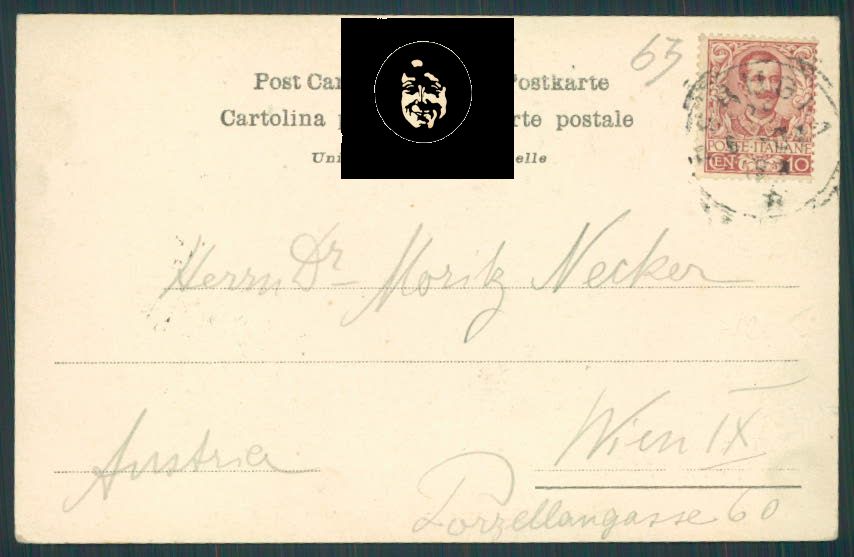 63
Post Car Postkarte
Cartolina p rte postale
Uni elle
POSTE·ITALIANE
CEN 10
Herrn Dr Moritz Necker
Austria
Wien IX
Porzellangasse 60